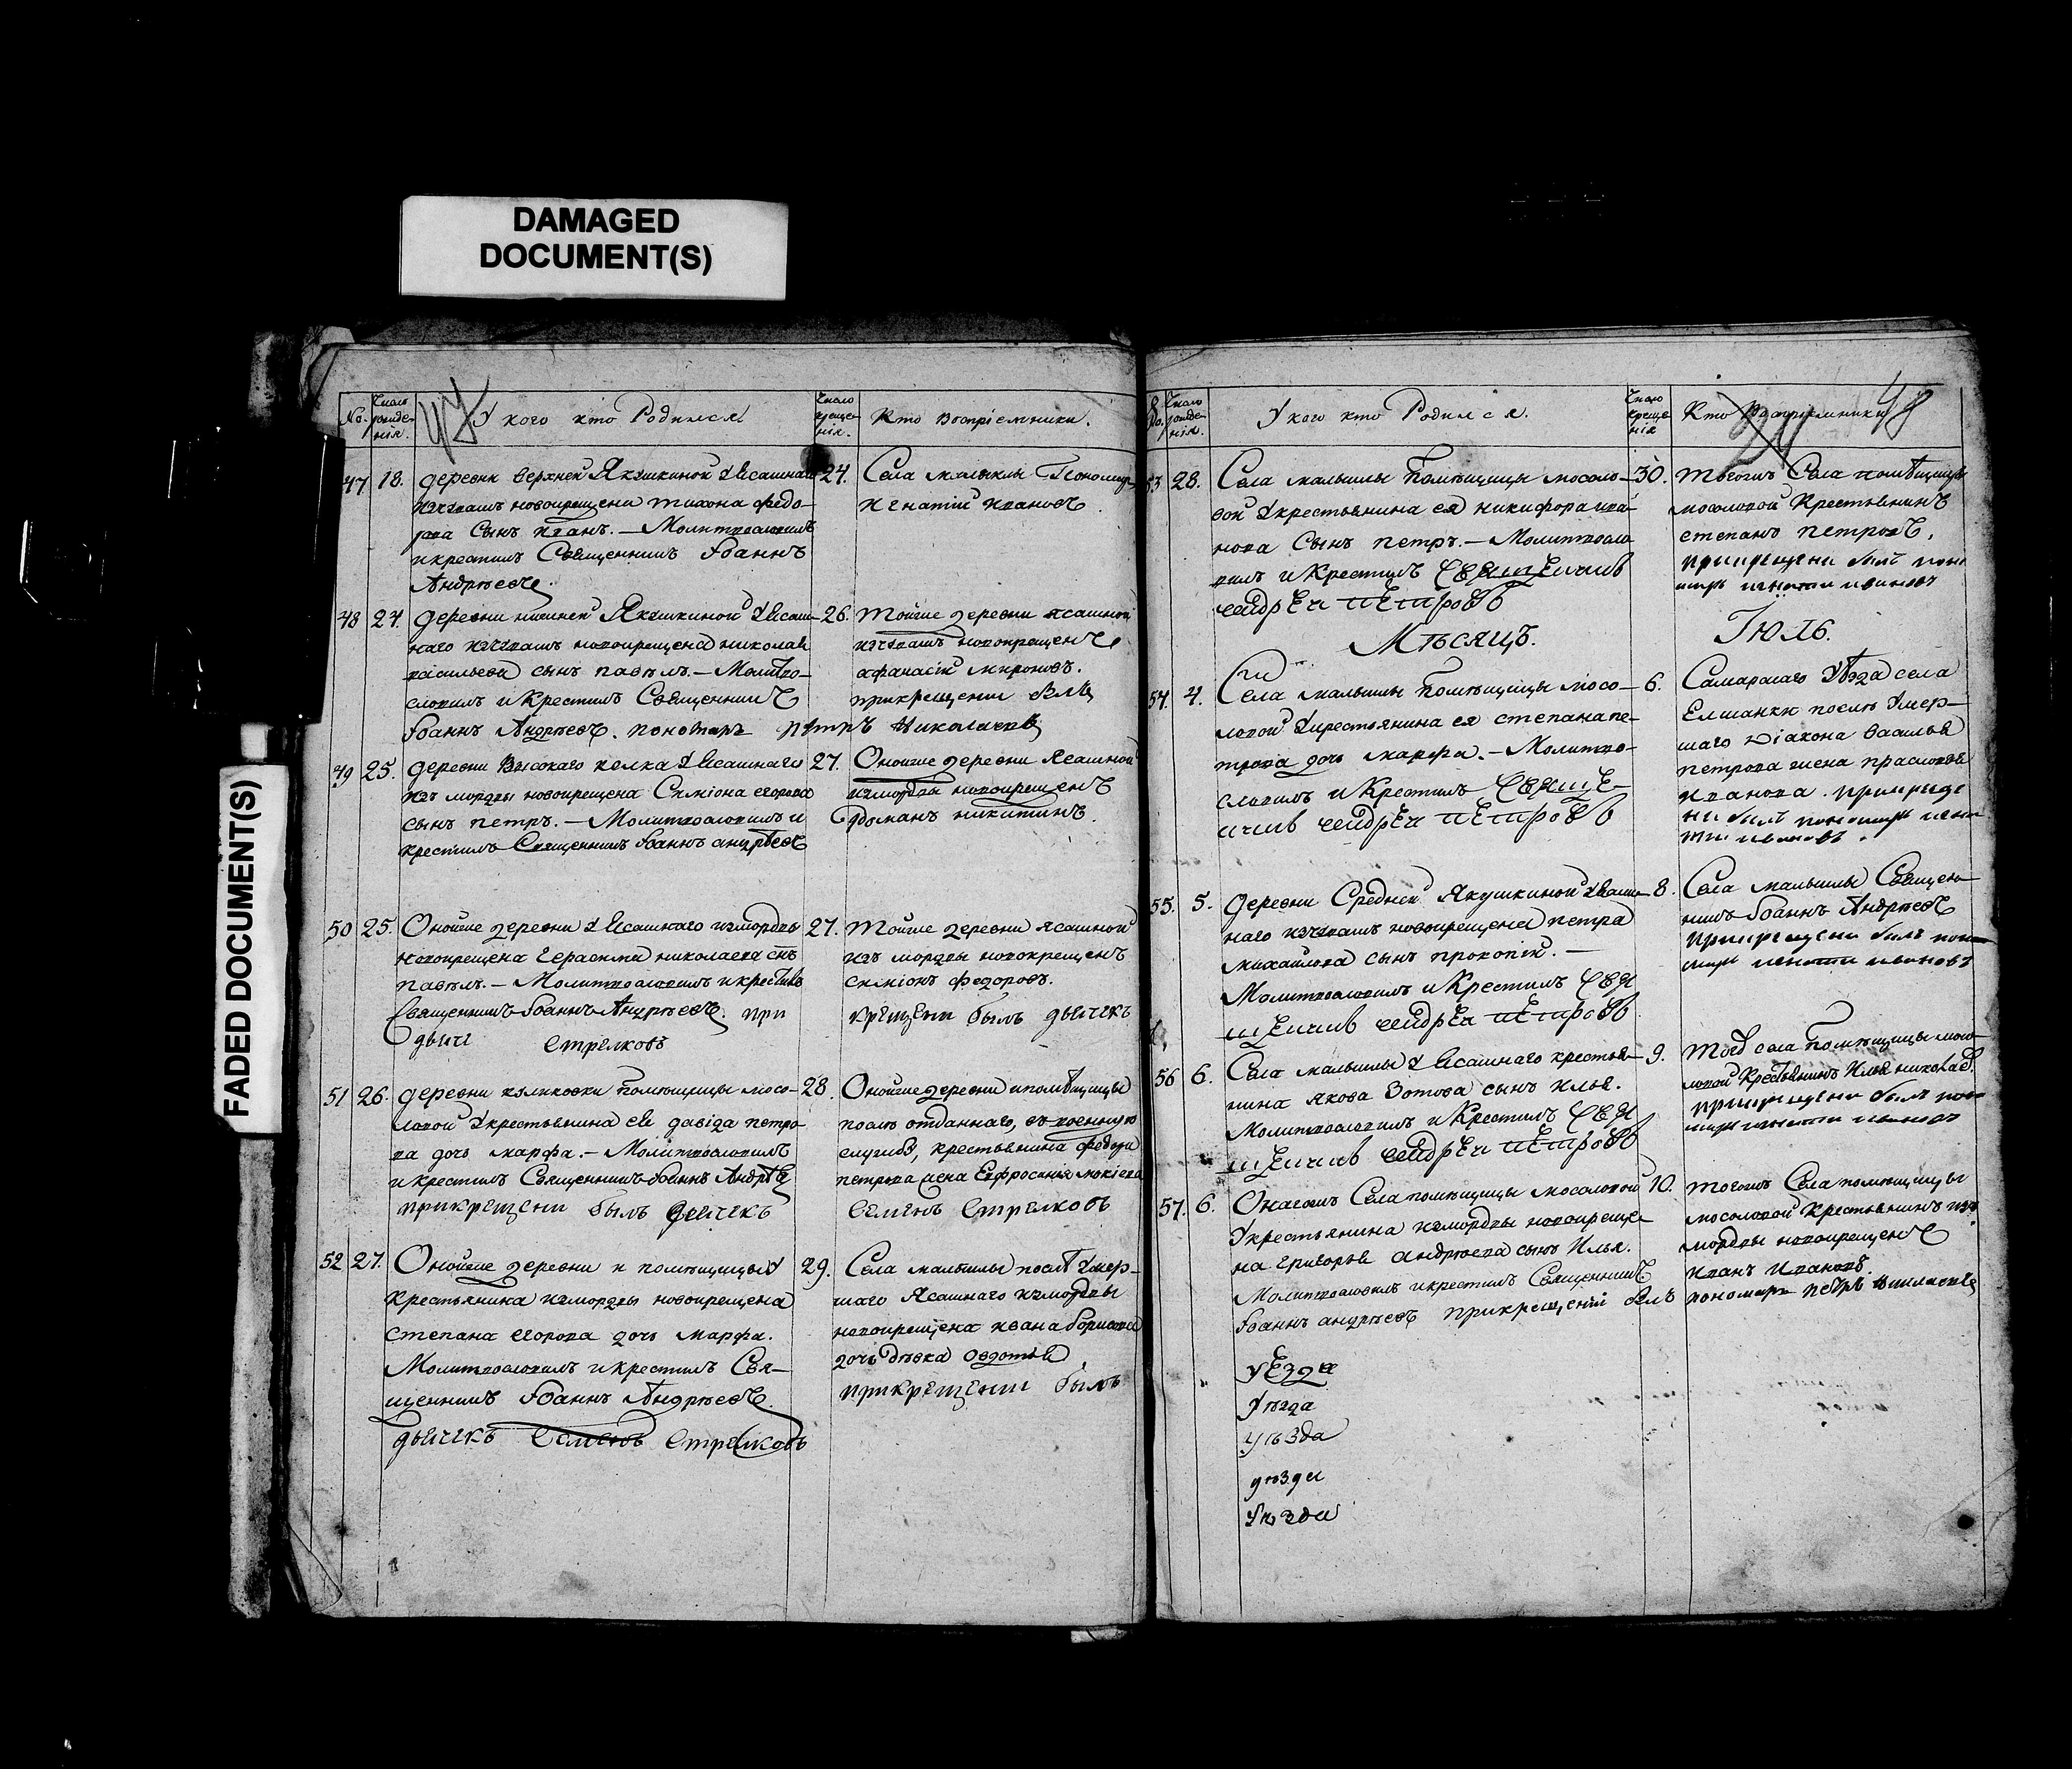 DAMAGED
DOCUMENT(S)
FADED DOCUMENT(S)
No. Число рожде-нія. У кого кто Родился Число креще-нія. Кто воспріемники.
47 18. деревни верхней Якушкиной у Ясашнаго
изчувашъ новокрещена тихона федо-
рова сынъ иванъ. — Молитвословилъ
и крестилъ Священникъ Іоаннъ
Андрѣевъ.
24. Села малыклы Пономарь
игнатій ивановъ
48 24. деревни нижней Якушкиной у Ясаш-
наго изчувашъ новокрещена николая
васильева сынъ павелъ. — Молитво-
словилъ и Крестилъ Священникъ
Іоаннъ Андрѣевъ. пономарь петръ Николаевъ
26. Тойже деревни ясашной
изчувашъ новокрещенъ
афанасій мироновъ.
прикрещении былъ
49 25. деревни Высокаго колка у Ясашнаго
изъ мордвы новокрещена Симіона егорова
сынъ петръ. — Молитвословилъ и
крестилъ Священникъ Іоаннъ андрѣевъ
27. Оной же деревни Ясашной
измордвы новокрещенъ
романъ никитинъ.
50 25. Оной же деревни у Ясашнаго измордвы
новокрещена Герасима николаева снъ
павелъ. — Молитвословилъ и крестилъ
Священникъ Іоаннъ Андрѣевъ. при
дьячекъ Стрелковъ
27. Тойже деревни Ясашной
изъ мордвы новокрещенъ
симіонъ федоровъ.
крещени былъ дьячекъ
51 26. деревни куликовки помѣщицы мосо-
ловой у крестьянина ея давіда петро-
ва дочь марфа. — Молитвословилъ
и крестилъ Священникъ Іоаннъ Андрѣевъ
прикрещени былъ дьячекъ
28. Оной же деревни и помѣщицы
послѣ отданнаго, въ военную
службу, крестьянина федора
петрова жена Евфросинія
Семенъ Стрелковъ
52 27. Оной же деревни и помѣщицы у
крестьянина измордвы новокрещена
степана егорова дочь марфа.
Молитвословилъ и крестилъ Свя-
щенникъ Іоаннъ Андрѣевъ.
дьячекъ Семенъ Стрелковъ
29. Села малыклы послѣ умер-
шаго Ясашнаго измордвы
новокрещена ивана борисова
дочь дѣвка овдотья
прикрещени былъ
48
No. Число рожде-нія. У кого кто Родился. Число креще-нія Кто воспріемники
53 28. Села малыклы Помѣщицы мосоло-
вой у крестьянина ея никифора ива-
нова Сынъ петръ. — Молитвосло-
вилъ и Крестилъ священникъ
андреи петровъ
30. тогожъ Села помѣщицы
мосоловой Крестьянинъ
степанъ петровъ,
прикрещени былъ поно
марь игнати ивановъ
Мѣсяцъ. Іюль.
54. 4. Села малыклы Помѣщицы мосо-
ловой у крестьянина ея степана пе-
трова дочь марфа. — Молитво-
словилъ и Крестилъ свяще
никъ андреи петровъ
6. Самарскаго Уѣзда села
Елшанки послѣ умер-
шаго Діакона василья
петрова жена прасковья
иванова. прикреще
ни былъ пономарь игна
ти ивановъ.
55. 5. деревни Средней Якушкиной у Ясаш-
наго изчувашъ новокрещена петра
михайлова сынъ прокопій. —
Молитвословилъ и Крестилъ свя
щеникъ андреи петровъ
8. Села малыклы Священ-
никъ Іоаннъ Андрѣевъ
прикрещени былъ поно
марь игнати ивановъ
56 6. Села малыклы у Ясашнаго крестья-
нина якова Зотова сынъ илья.
Молитвословилъ и Крестилъ свя
щеникъ андреи петровъ
9. тогожъ села Помѣщицы мосо-
ловой Крестьянинъ Илья николаевъ.
прикрещени былъ поно
марь игнати ивановъ
57. 6. Онагожъ Села помѣщицы мосоловой
у крестьянина измордвы новокреще-
на григорья андрѣева сынъ Илья.
Молитвословилъ и крестилъ Священникъ
Іоаннъ андрѣевъ прикрещеніи былъ
10. тогожъ Села помѣщицы
мосоловой Крестьянинъ изъ
мордвы новокрещенъ
иванъ ивановъ.
пономарь петръ николаевъ
уезда
уѣзда
уѣзда
уѣзда
уѣзда